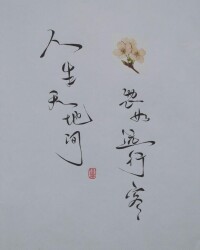 人生天地间
忽如遠行客